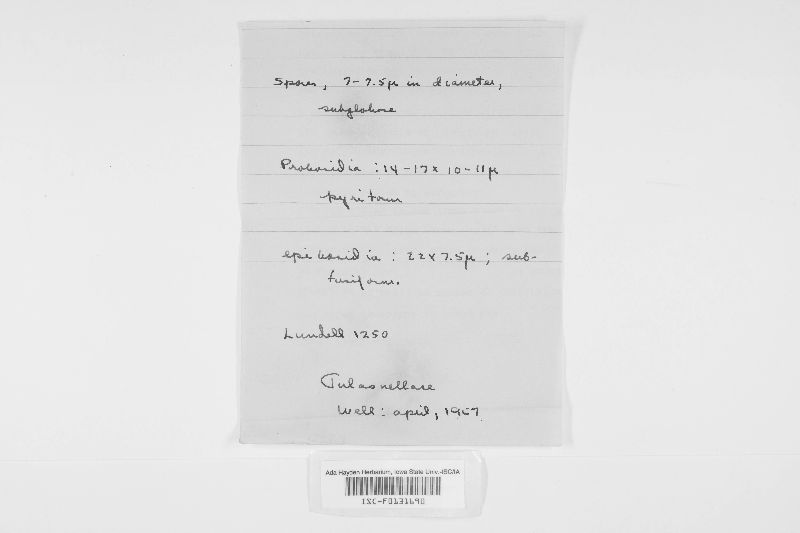 Spores, 7-7.5µ in diameter,
subglobose
Probasidia : 14-17 x 10-11µ
pyriform
epibasidia : 22 x 7.5µ ; sub-
fusiform.
Lundell 1250
Tulasnellaceae
Well: april, 1957
Ada Hayden Herbarium, Iowa State Univ.-ISC/IA
ISC-F0131690